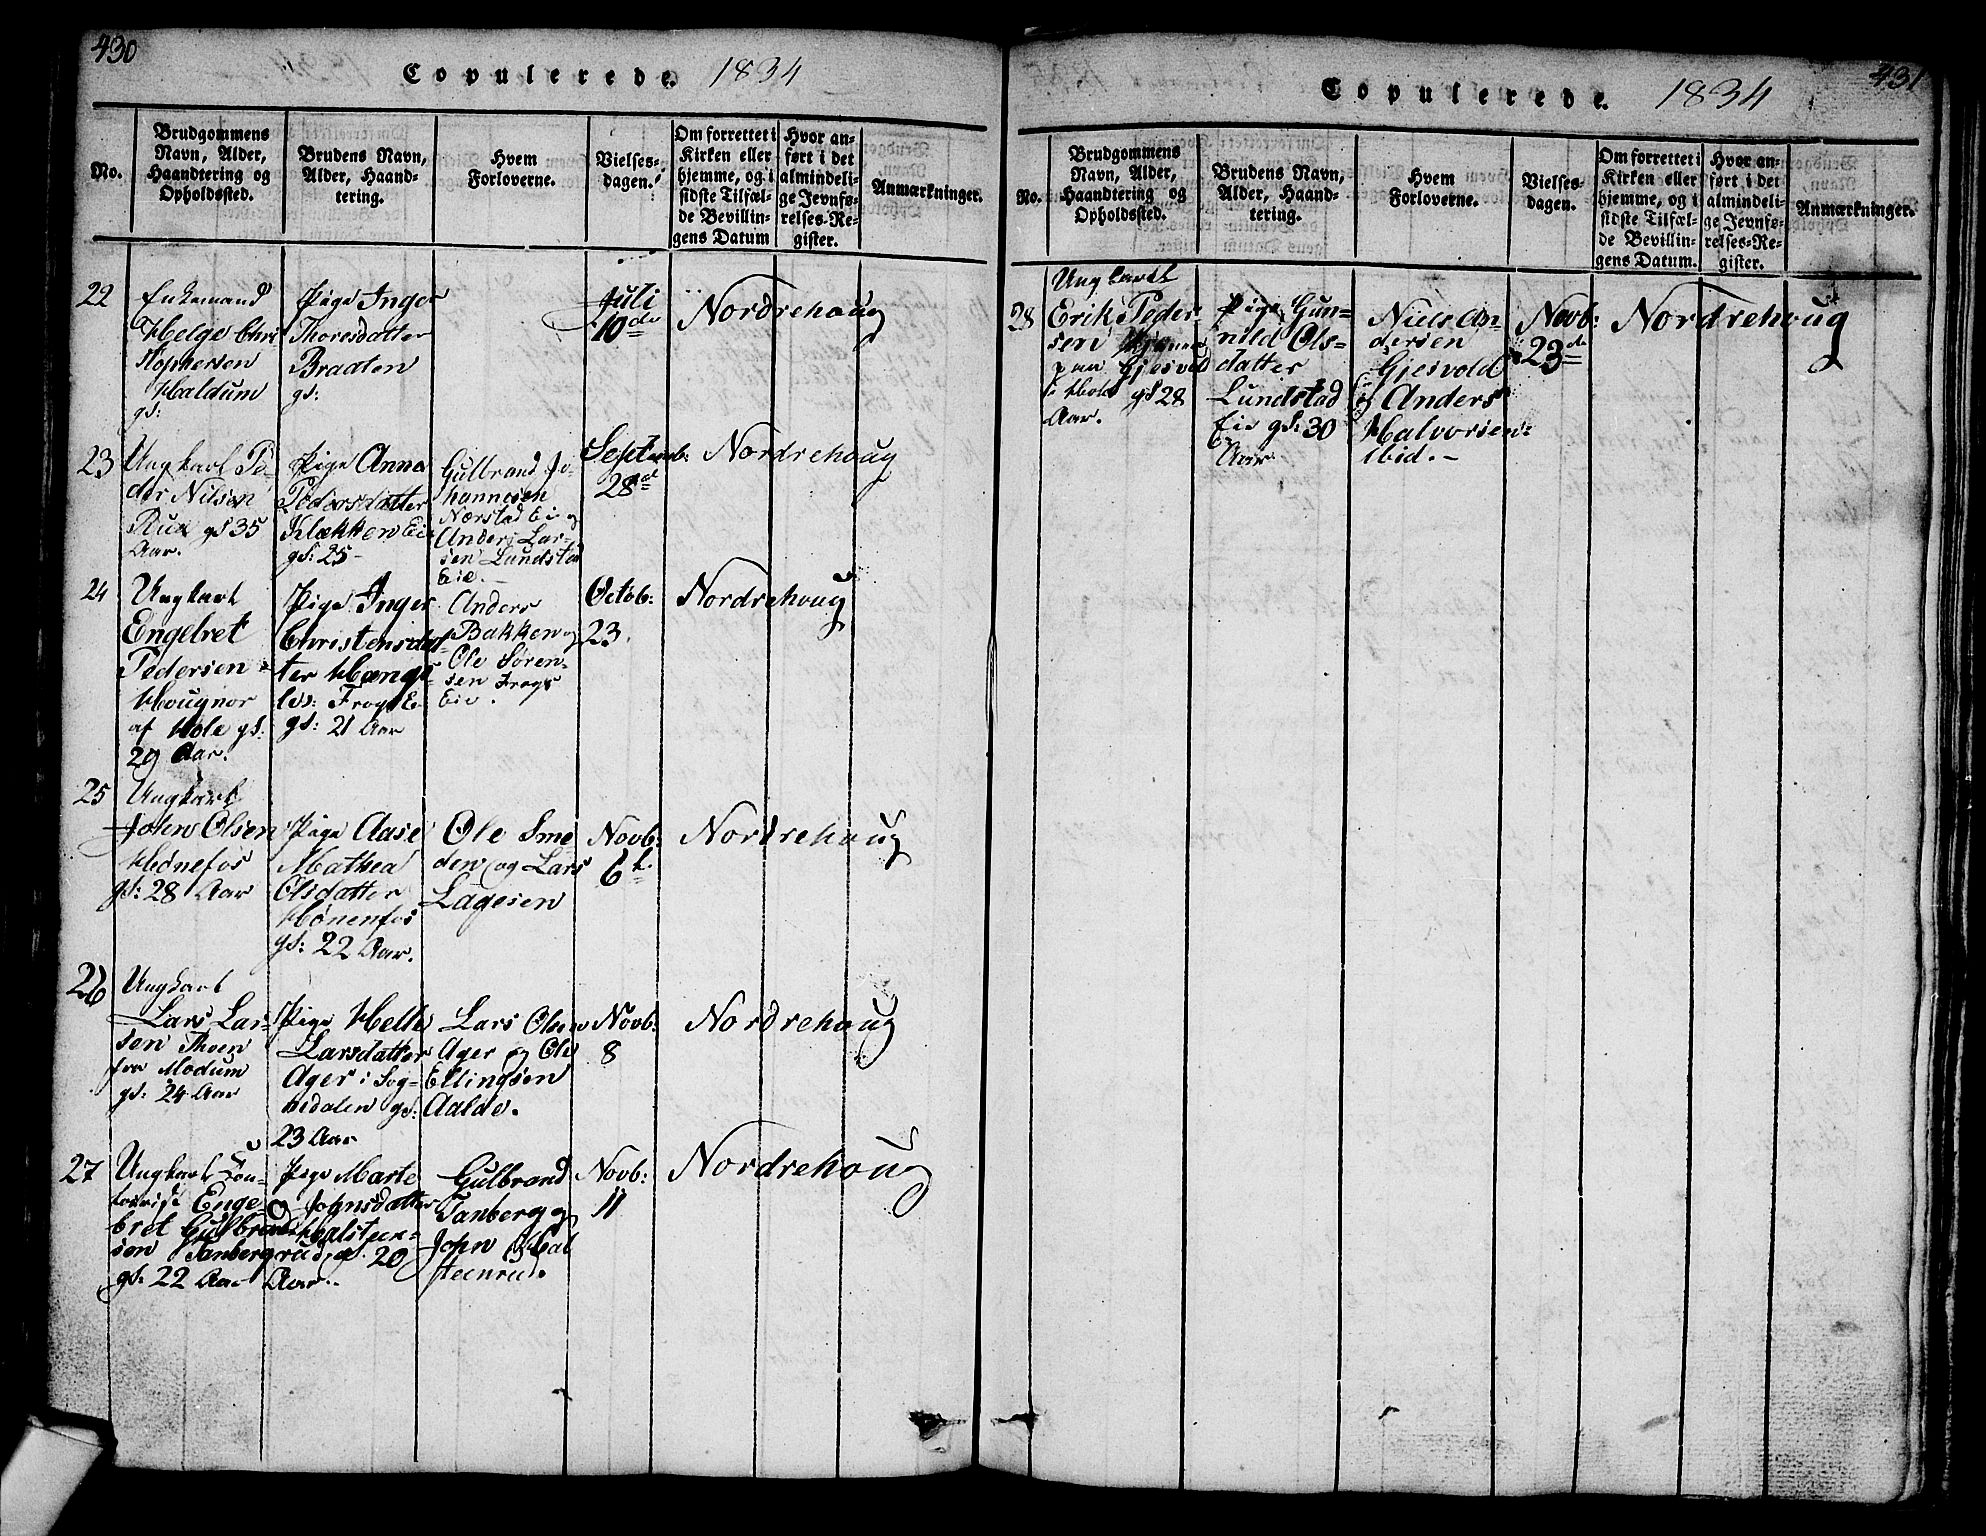 430
Copulerede. 1834
No.
Brudgommens
Navn, Alder,
Haandtering og
Opholdssted.
Brudens Navn,
Alder, Haand-
tering.
Hvem
Forloverne.
Vielses-
dagen.
Om forrettet i
Kirken eller
hjemme, og i
sidste Tilfæl-
de Bevillin-
gens Datum
Hvor an-
ført i det
almindeli-
ge Jevnfø-
relses-Re-
gister.
Anmærkninger.
22
Enkemand
Helge Chri
stophersen
Haldum
gl:
Pige Inger
Thoresdatter
Braaten
gl:
Juli
10de
Nordrehoug
23
Ungkarl Pe-
der Nilsen
gl 35
Aar.
Pige Anna
Pedersdatter
Klækken Eie
gl: 25 -
Gulbrand Jo-
hannesen
Nærstad Eie og
Anders Lar-
sen Lundstad
Eie. -
Septemb:
28de
Nordrehoug
24
Ungkarl
Engelret
Pedersen
Hougnor
af Hole gl:
29 Aar.
Pige Inger
Christensdat-
ter Hængs-
les: Frogs Ei
gl: 21 Aar
Anders
Bakken og
Ole Søren-
sen Frogs
Eie.
Octob:
23.
Nordrehoug
25
Ungkarl
John Olsen
Hønefos
gl: 28 Aar
Pige Aase
Mathea
Olsdatter
Hønenfos
gl: 22 Aar.
Ole Sme-
den og Lars
Lagesen
Novb:
6te
Nordrehoug
26
Ungkarl
Lars Lar-
sen Thoen
fra Modum
gl: 24 Aar
Pige Helle
Larsdatter
Ager i Sog-
nedalen gl:
23 Aar
Lars Olsen
Ager og Ole
Ellingsen
Aalde.
Novb:
8
Nordrehoug
27
Ungkarl
Enge-
bret Gulbrand-
sen Tanbergrud
gl: 22 Aar
Pige Marte
Johnsdatter
Halsteen-
gl. 20
Aar.
Gulbrand
Tanberg og
John Hal
steenrud.
Novb:
11
Nordrehoug
431
Copulerede. 1834
No.
Brudgommens
Navn, Alder,
Haandtering og
Opholdssted.
Brudens Navn,
Alder, Haand-
tering.
Hvem
Forloverne.
Vielses-
dagen.
Om forrettet i
Kirken eller
hjemme, og i
sidste Tilfæl-
de Bevillin-
gens Datum.
Hvor an-
ført i det
almindeli-
ge Jevnfø-
relses-Re-
gister.
Anmærkninger.
28
Ungkarl
Erik Peder-
sen
paa Gjesvold
i Hole gl 28
Aar.
Pige Gun-
nild Ols-
datter
Lundstad
Eie gl: 30
Aar
Niels An-
dersen
Gjesvold
og Anders
Halvorsen
ibid. -
Novb:
23de
Nordrehoug